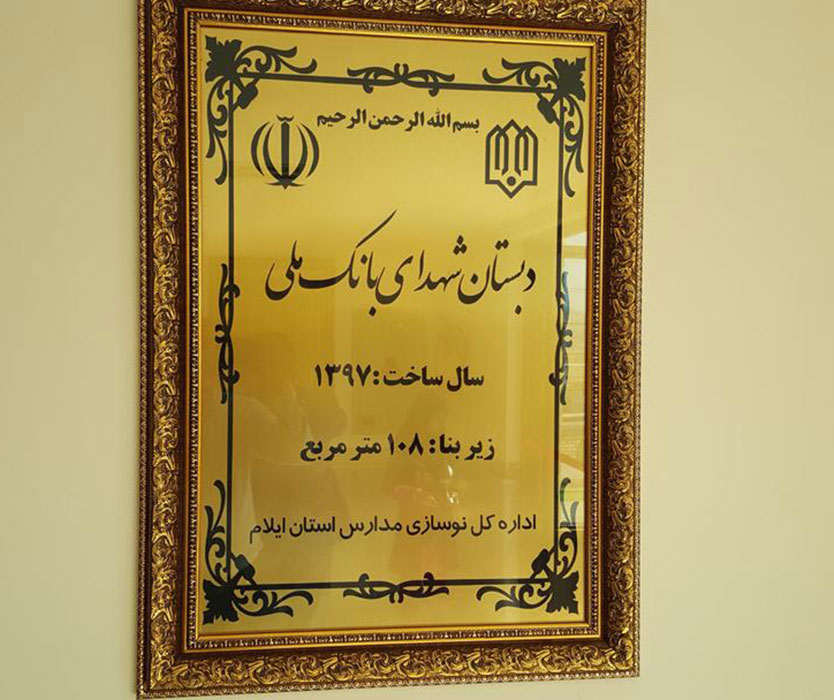 بسم الله الرحمن الرحیم
دبستان شهدای بانک ملی
سال ساخت: ۱۳۹۷
زیر بنا: ۱۰۸ متر مربع
اداره کل نوسازی مدارس استان ایلام